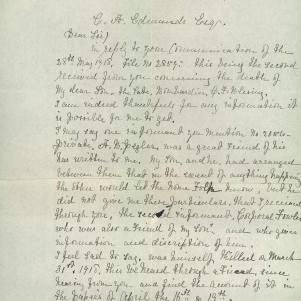 C. A. Edmunds Esqr.
Dear Sir)
In reply to your Communication of the
28th May 1918. File No 2809. this being the second
received from you concerning the death of
My dear Son. the late, Bombardier,
I am indeed thankfull for any information it
is possible for me to get.
I may say one informant you mention No
Private, A. W. was a great friend of his
has written to me. My son, and he, had arranged
between them that in the event of anything happening
the other would let the Home Folk know, but he
did not give me these particulars, that I received
through you, the second informant, Corporal Fowler
who was also a friend of My Son's, and who gives
information and discription of him.
I feel sad to say, was himself Killed in March
31st, 1918, this we heard through a friend, since
hearing from you and find the account of it in
the papers of April the 16th & 19th